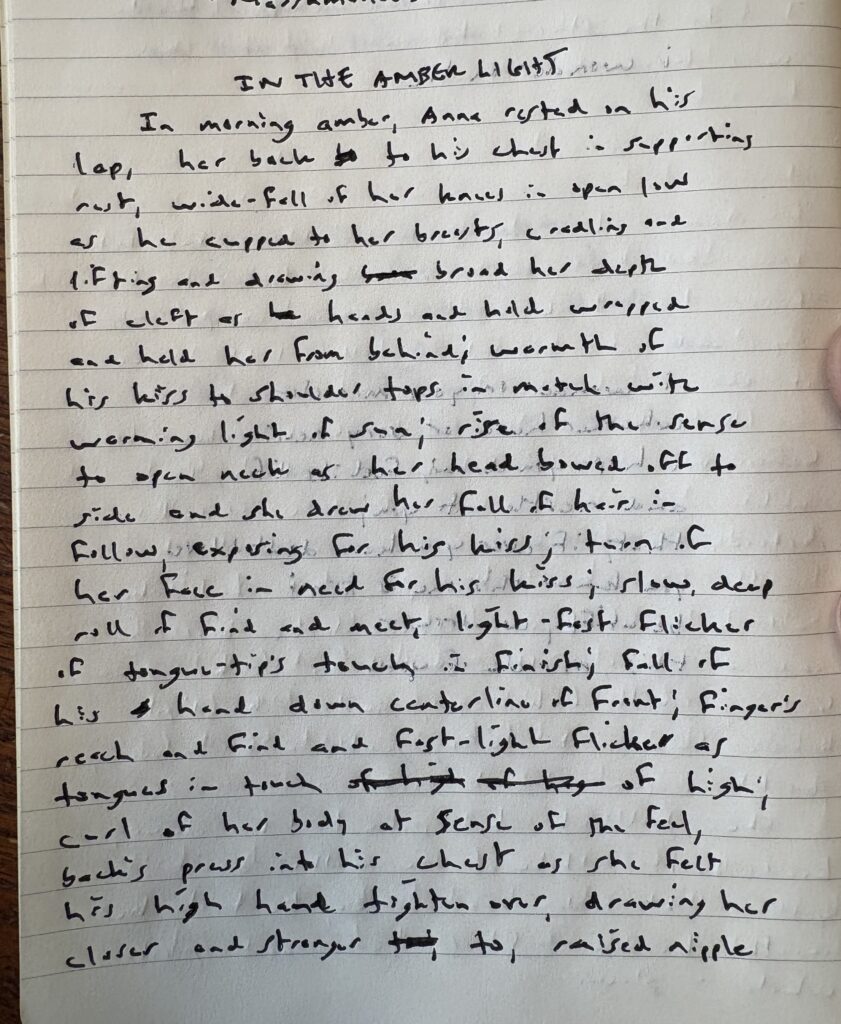 IN THE AMBER LIGHT
In morning amber, Anna rested on his
lap, her back to his chest in supporting
rest, wide-fall of her knees in open low
as he cupped to her breasts, cradling and
lifting and drawing broad her depth
of cleft as hands and hold wrapped
and held her from behind; warmth of
his kiss to shoulder tops in match with
warming light of sun; rise of the sense
to open neck as her head bowed off to
side and she drew her fall of hair in
follow, exposing for his kiss; turn of
her face in need for his kiss; slow, deep
roll of find and meet, light-fast flicker
of tongue-tip's touch in finish; fall of
his hand down centerline of front; finger's
reach and find and fast-light flicker as
tongues in touch of high;
curl of her body at sense of the feel,
back's press into his chest as she felt
his high hand tighten over, drawing her
closer and stronger to, raised nipple